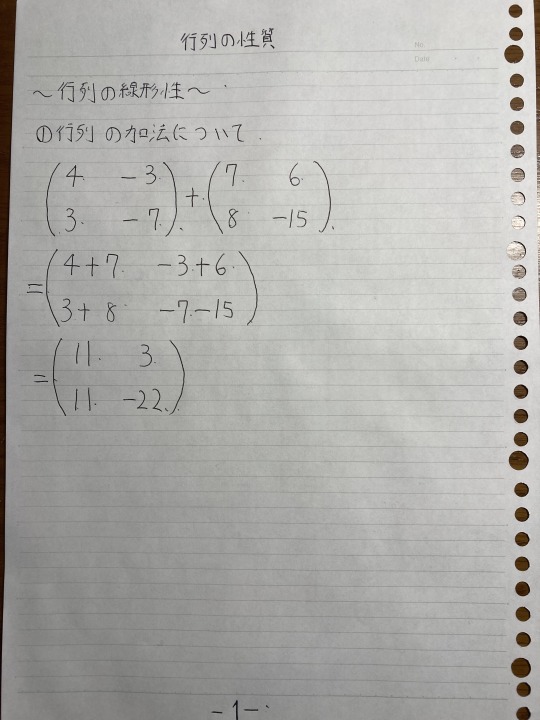 行列の性質
No.
Date
〜行列の線形性〜
①行列の加法について
(4 -3) + (7 6)
(3 -7) (8 -15)
= (4+7 -3+6)
(3+8 -7-15)
= (11 3)
(11 -22)
-1-